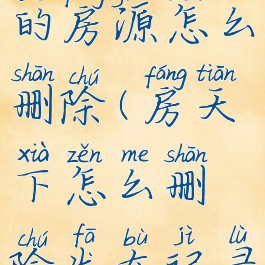 的房源怎么
shān chú fáng tiān
删除(房天
xià zěn me shān
下怎么删
chú fā bù jì lù
除发布记录